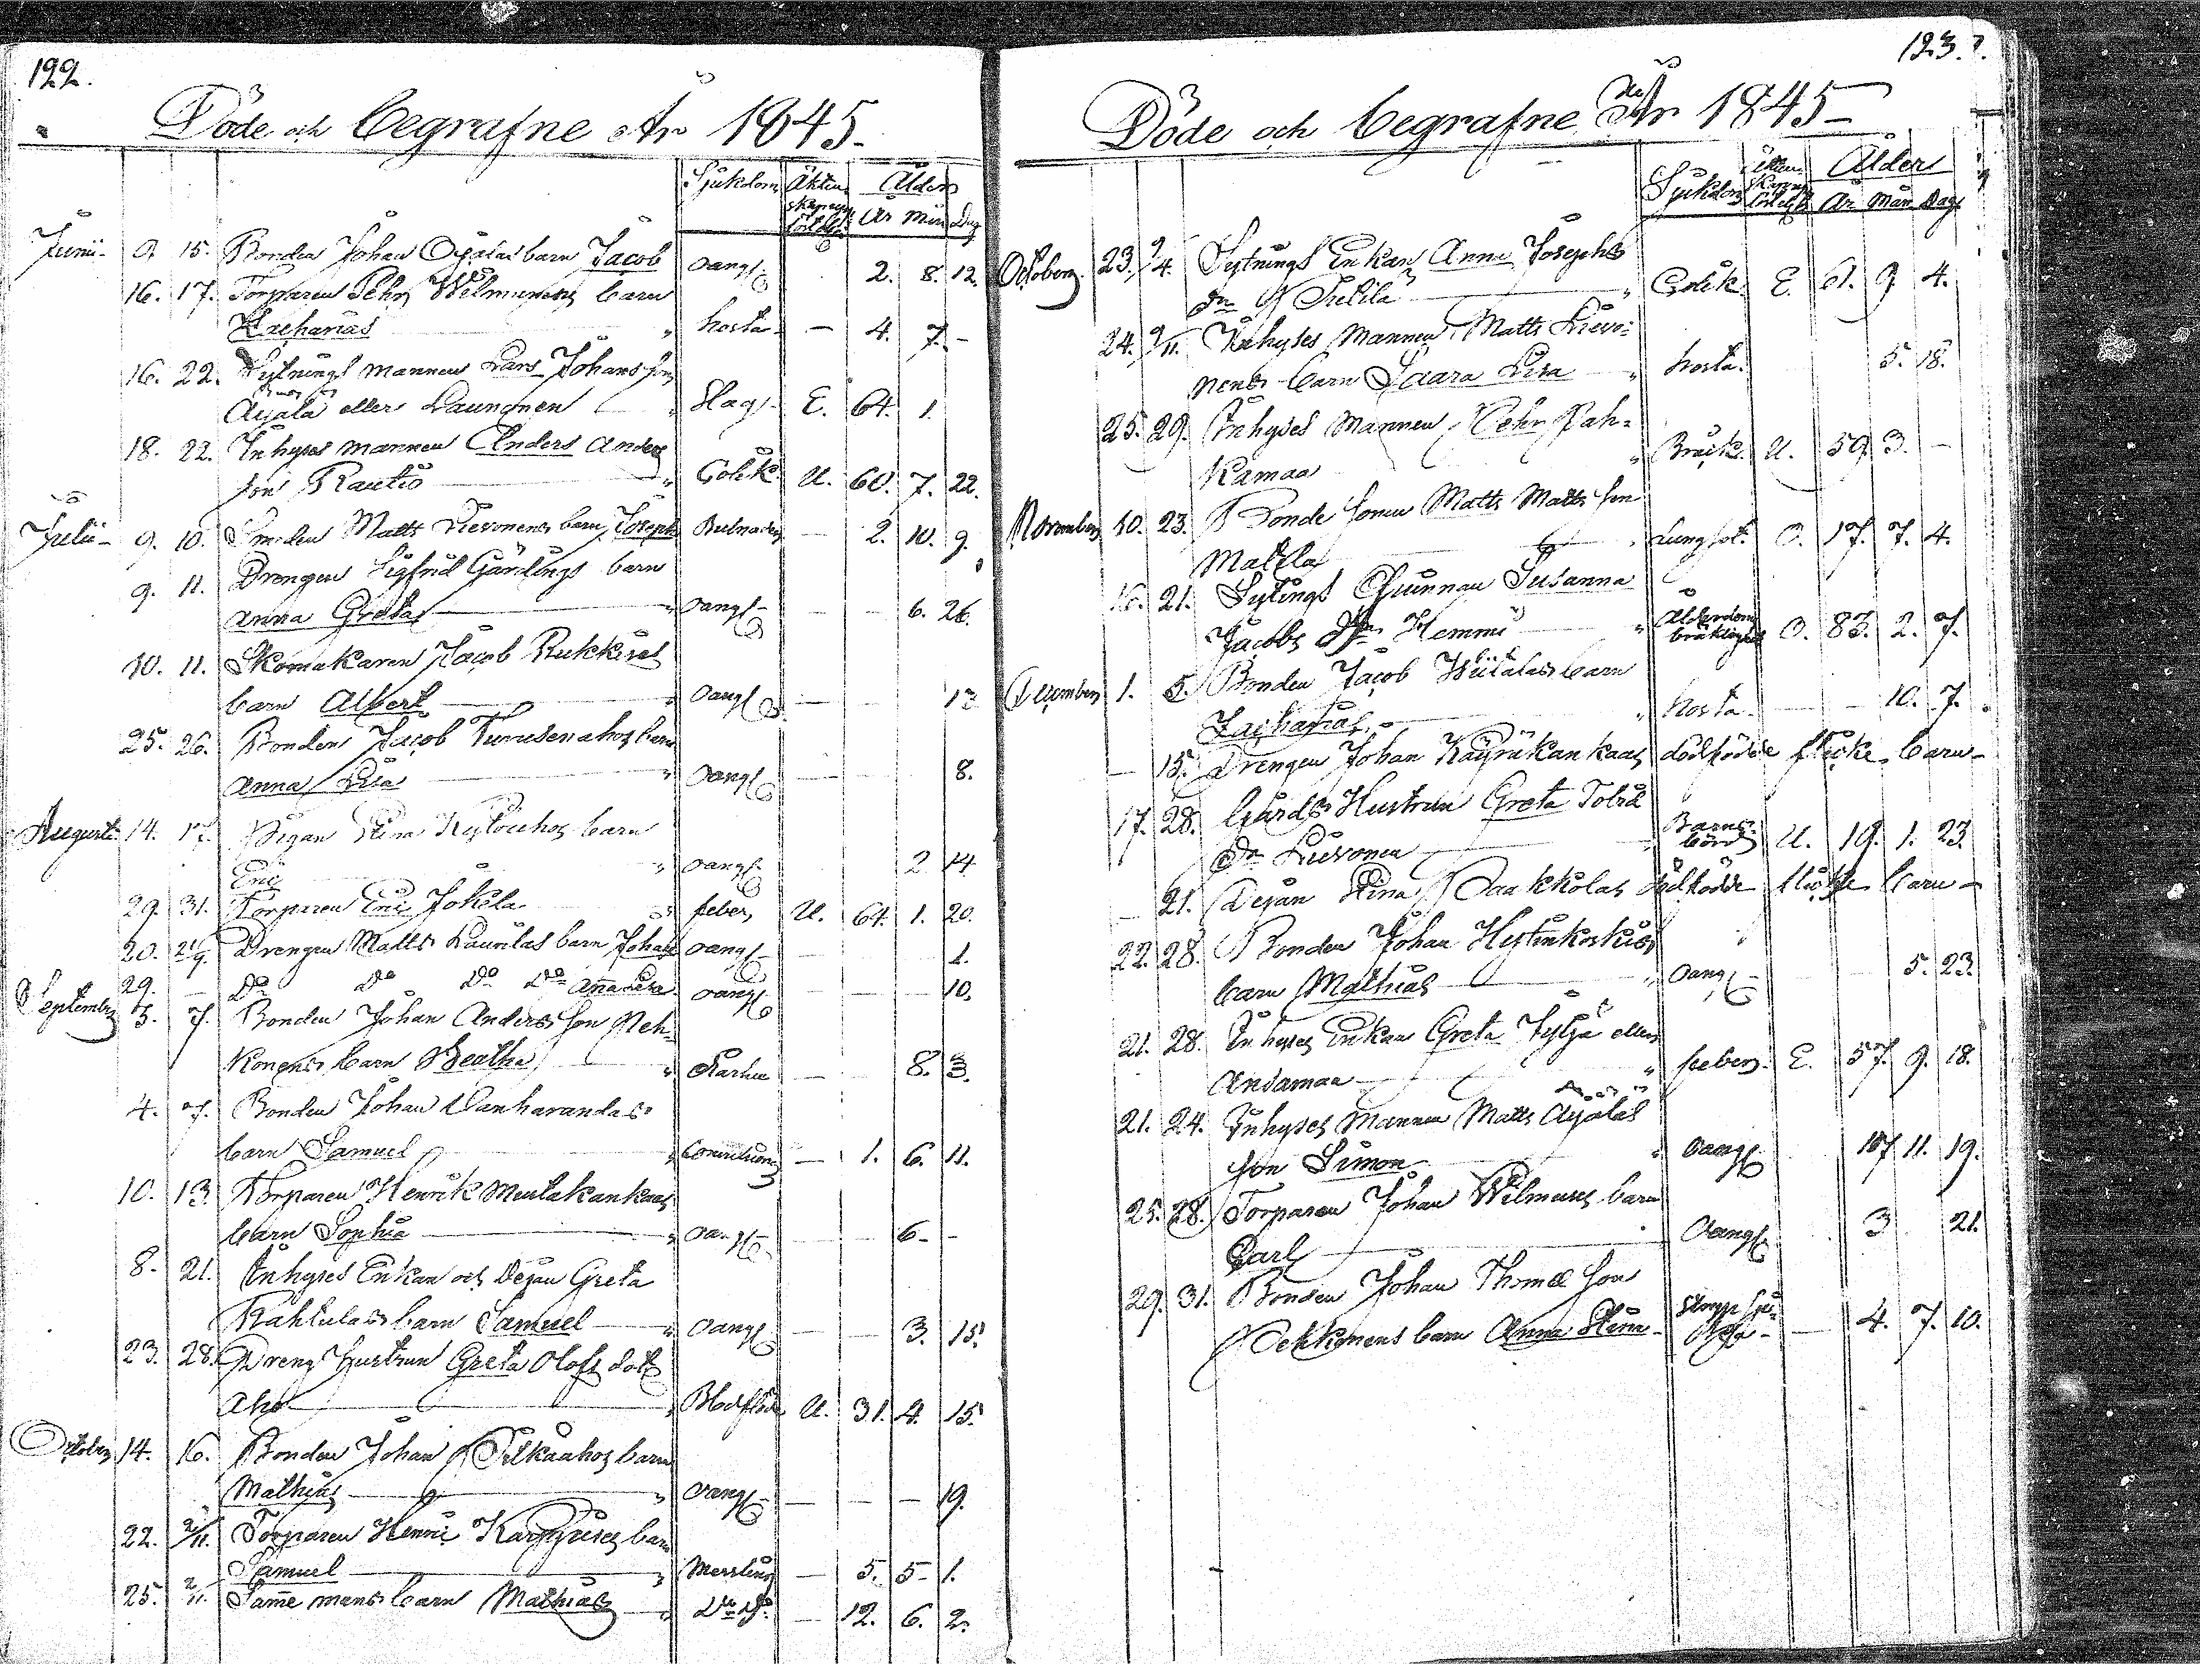 122.
Döde och begrafne År 1845.
Sjukdom Äktenskaps Ålder
År Mån Dag
Junii 9. 15. Bonden Johan Ojalas barn Jacob oangf. 2. 8. 12.
16. 17. Torparen Pehr Wilmunens barn
Zacharias hosta — 4. 7. —
16. 22. Sytnings mannen Lars Johansson
Ajälä eller Launonen Slag E. 64. 1.
18. 22. Inhyses mannen Anders Anders
son Rautio Colik U. 60. 7. 22.
Julii 9. 10. Smeden Matts Lievonens barn Joseph — 2. 10. 9.
9. 11. Drengen Sigfrid Gärdings barn
Anna Greta oangf. — — 6. 26.
10. 11. Skomakaren Jacob Rukkises
barn Albert oangf. — 13
25. 26. Bonden Jacob Turusenahos barn
Anna Lisa oangf. — 8.
Augusti 14. 17. Pigan Stina barn
Eric oangf. 2 14
29. 31. Torparen Eric Jokela feber U. 64. 1. 20.
20. 21/9 Drengen Matts Laurilas barn Johan oangf. — 1.
29. — Do Do Do Do Ana Lisa oangf. — 10.
September 5. 7. Bonden Johan Anders son Neh-
konens barn Beatha — 8. 3.
4. 7. Bonden Johan Wanharandas
barn Samuel Convulsion — 1. 6. 11.
10. 13. Torparen Henrik Mustakankaas
barn Sophia oangf. — — 6 — —
8. 21. Inhyses Enkan och Dejan Greta
Rahkulas barn Samuel oangf. — 3. 15.
23. 28. Dreng Hustrun Greta Olofs dott
Aho Blodflöde U. 31. 4. 15.
October 14. 16. Bonden Johan Silkaahos barn
Mathias oangf. — — — 19.
22. 2/11. Torparen Henric Karppises barn
Samuel Messling — 5. 5 1.
25. 2/11. Samme mans barn Mathias Do Do — 12. 6. 2.
123.
Döde och begrafne År 1845
Sjukdom Ålder
År Mån Dag
October 23. 9/4. Sytnings Enkan Anna Josephs
dr Sulila Colik E. 61. 9 4.
24. 9/11. Inhyses Mannen Matts Lievo-
nens barn Saara Lisa hosta. 5. 18.
25. 29. Inhyses Mannen Pehr Pah-
kamaa Bråck. U. 59 3. —
November 10. 23. Bonde sonen Matts Matts son
Mattla Lungsot. O. 17. 7. 4.
16. 21. Sytings Quinnan Susanna
Jacobs Dr Hemmi Ålderdoms bräcklighet O. 83. 2. 7.
December 1. 5. Bonden Jacob Wiitalas barn
Zacharias hosta — — 10. 7.
— 15. Drengen Johan Käyräkankaas dödfödde flicke barn —
17. 28. Gårds Hustrun Greta Tobid
Dr Lievonen Barnsbörd U. 19. 1. 23.
— 21. Dejan Stina Paakkolas dödfödde flicke barn —
22. 28. Bonden Johan Hystinkoskis
barn Mathias oangf. — 5. 23.
21. 28. Inhyses Enkan Greta Tyljä eller
Andamaa feber E. 57. 9. 18.
21. 24. Inhyses Mannen Matts Ajäläs
son Simon oangf. 17 11. 19.
25. 28. Torparen Johan Wilmunes barn
Carl oangf. 3 21.
29. 31. Bonden Johan Thomæ son
Pekkonens barn Anna Stina — 4. 7. 10.